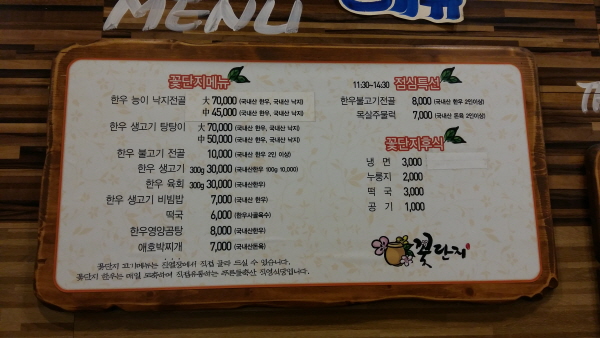 MENU
꽃단지메뉴
한우 능이 낙지전골 大 70,000 (국내산 한우, 국내산 낙지)
中 45,000 (국내산 한우, 국내산 낙지)
한우 생고기 탕탕이 大 70,000 (국내산 한우, 국내산 낙지)
中 50,000 (국내산 한우, 국내산 낙지)
한우 불고기 전골 10,000 (국내산 한우 2인 이상)
한우 생고기 300g 30,000 (국내산한우 100g 10,000)
한우 육회 300g 30,000 (국내산한우)
한우 생고기 비빔밥 7,000 (국내산 한우)
떡국 6,000 (한우사골육수)
한우영양곰탕 8,000 (국내산한우)
애호박찌개 7,000 (국내산돈육)
꽃단지 고기메뉴는 직매장에서 직접 골라 드실 수 있습니다.
꽃단지 한우는 매일 도축하여 직접유통하는 푸른들축산 직영식당입니다.
11:30~14:30 점심특선
한우불고기전골 8,000 (국내산 한우 2인이상)
목살주물럭 7,000 (국내산 돈육 2인이상)
꽃단지후식
냉 면 3,000
누룽지 2,000
떡 국 3,000
공 기 1,000
꽃단지